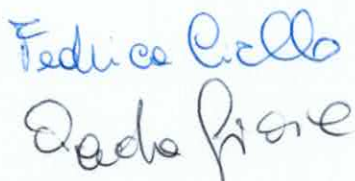 Federica Ciello
Paola Fiore